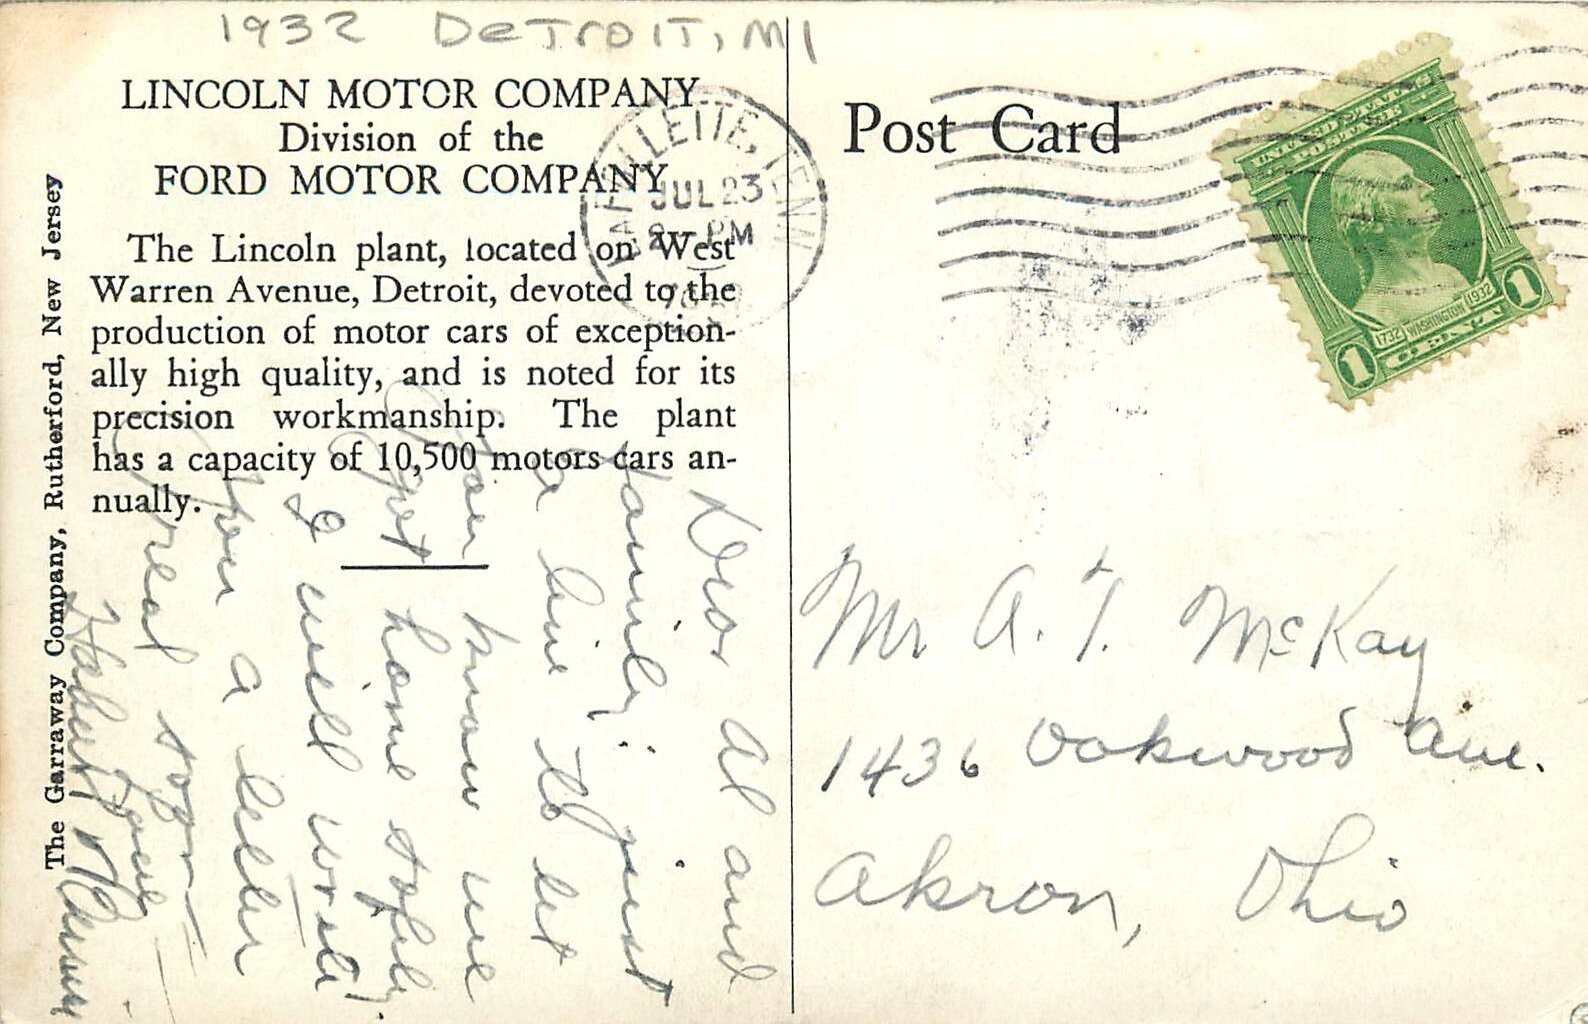 1932 Detroit, MI
LINCOLN MOTOR COMPANY
Division of the
FORD MOTOR COMPANY
The Lincoln plant, located on West
Warren Avenue, Detroit, devoted to the
production of motor cars of exception-
ally high quality, and is noted for its
precision workmanship. The plant
has a capacity of 10,500 motors cars an-
nually.
The Garraway Company, Rutherford, New Jersey
LAFOLLETTE, TENN
JUL 23
PM
Dear Al and
family: just
a line to let
you know we
got home safely.
I will write
you a letter
real soon
Post Card
UNITED STATES
POSTAGE
1732 WASHINGTON 1932
1 CENT 1
Mr A. T. McKay
1436 Oakwood Ave.
Akron, Ohio